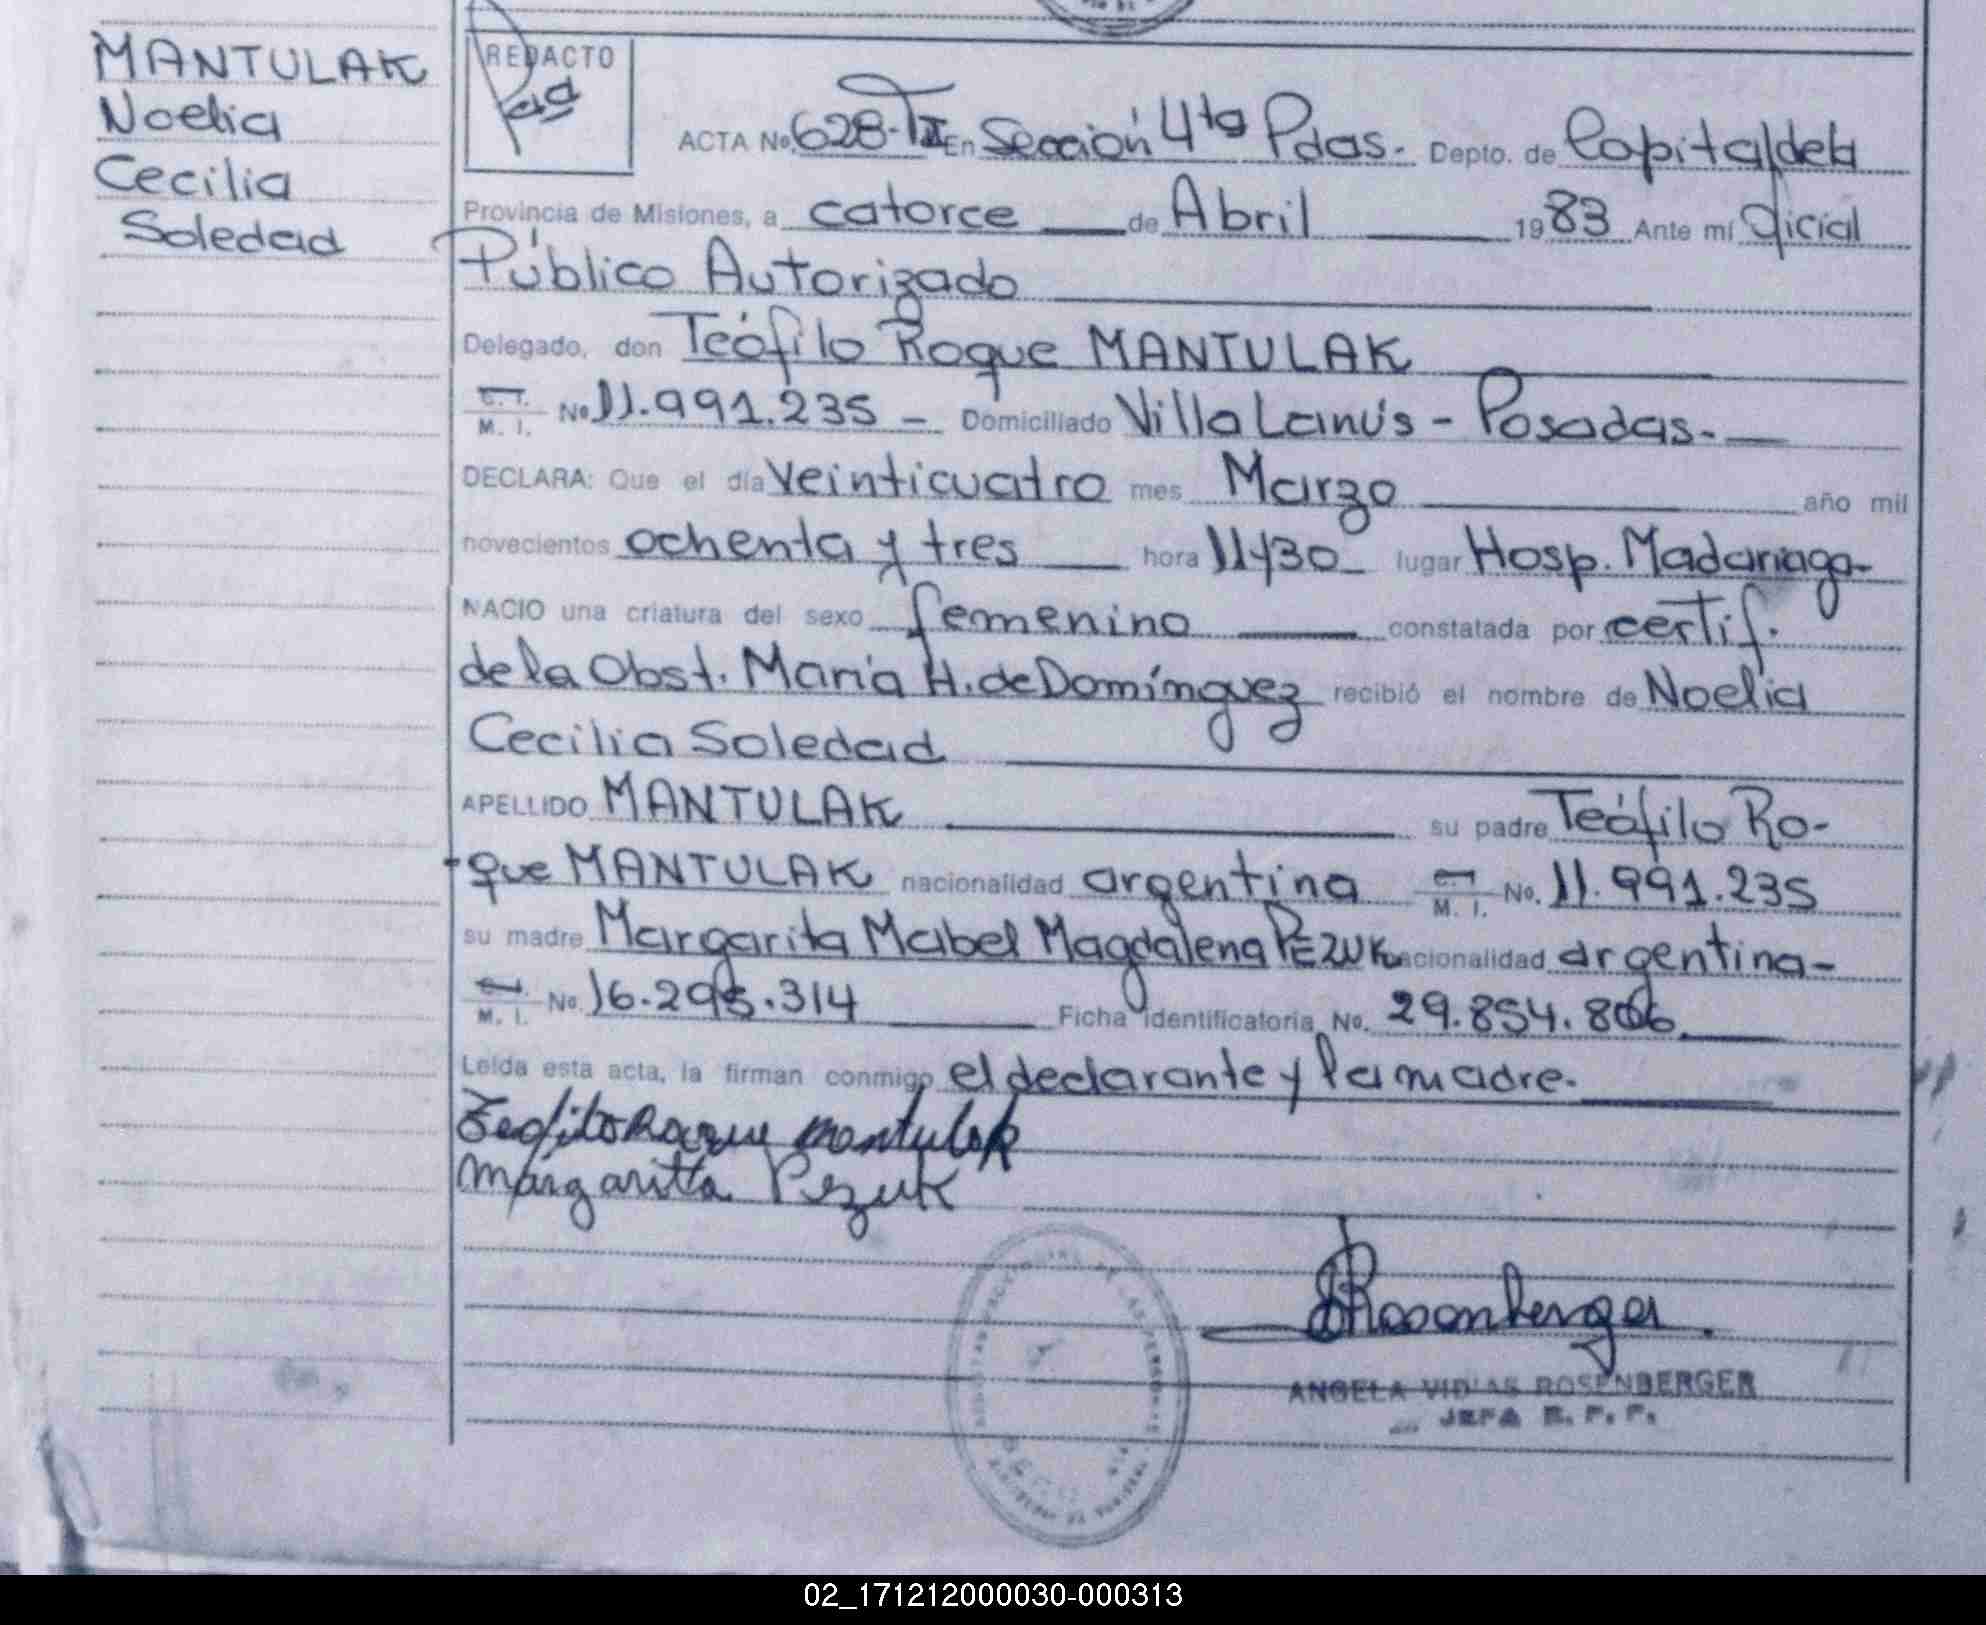 MANTULAK
Noelia
Cecilia
Soledad
REDACTO
ACTA No. 628-TII En Sección 4ta Pdas. Depto. de Capital de la
Provincia de Misiones, a catorce de Abril 1983 Ante mí Oficial
Público Autorizado
Delegado, don Teófilo Roque MANTULAK
M. I. No 11.991.235 - Domiciliado Villa Lanús - Posadas.-
DECLARA: Que el día veinticuatro mes Marzo año mil
novecientos ochenta y tres hora 11y30 lugar Hosp. Madariaga-
NACIO una criatura del sexo femenino constatada por certif.
de la Obst. María H. de Domínguez recibió el nombre de Noelia
Cecilia Soledad
APELLIDO MANTULAK su padre Teófilo Ro-
que MANTULAK nacionalidad argentina M. I. No. 11.991.235
su madre Margarita Mabel Magdalena PEZUK nacionalidad argentina-
M. I. No. 16.295.314 Ficha identificatoria No. 29.854.806
Leída esta acta, la firman conmigo el declarante y la madre.
Teofilo Roque Mantulak
Margarita Pezuk
Rosenberger
ANGELA VIDIAS ROSENBERGER
JEFA
02_171212000030-000313